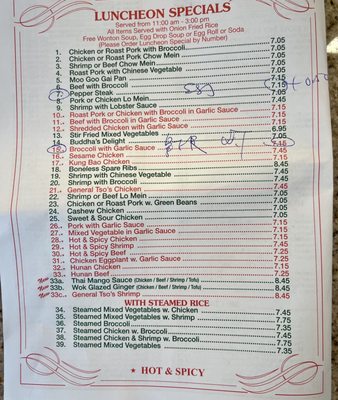 LUNCHEON SPECIALS
Served from 11:00 am - 3:00 pm
All Items Served with Onion Fried Rice
Free Wonton Soup, Egg Drop Soup or Egg Roll or Soda
(Please Order Luncheon Special by Number)
1. Chicken or Roast Pork with Broccoli 7.05
2. Chicken or Roast Pork Chow Mein 7.05
3. Shrimp or Beef Chow Mein 7.05
4. Roast Pork with Chinese Vegetable 7.05
5. Moo Goo Gai Pan 7.15
6. Beef with Broccoli 7.15
7. Pepper Steak 7.05
8. Pork or Chicken Lo Mein 7.05
9. Shrimp with Lobster Sauce 7.15
10. Roast Pork or Chicken with Broccoli in Garlic Sauce 7.15
11. Beef with Broccoli in Garlic Sauce 7.15
12. Shredded Chicken with Garlic Sauce 6.95
13. Stir Fried Mixed Vegetables 7.05
14. Buddha's Delight
15. Broccoli with Garlic Sauce 7.45
16. Sesame Chicken 7.15
17. Kung Bao Chicken 8.45
18. Boneless Spare Ribs 7.45
19. Shrimp with Chinese Vegetable 7.45
20. Shrimp with Broccoli 7.45
21. General Tso's Chicken 7.45
22. Shrimp or Beef Lo Mein 7.05
23. Chicken or Roast Pork w. Green Beans 7.05
24. Cashew Chicken 7.05
25. Sweet & Sour Chicken 7.15
26. Pork with Garlic Sauce 7.15
27. Mixed Vegetable in Garlic Sauce 7.15
28. Hot & Spicy Chicken 7.15
29. Hot & Spicy Shrimp 7.45
30. Hot & Spicy Beef 7.25
31. Chicken Eggplant w. Garlic Sauce 7.25
32. Hunan Chicken 7.15
33. Hunan Beef 7.25
New 33a. Thai Mango Sauce (Chicken / Beef / Shrimp / Tofu) 8.45
New 33b. Wok Glazed Ginger (Chicken / Beef / Shrimp / Tofu) 8.45
New 33c. General Tso's Shrimp 8.45
WITH STEAMED RICE
34. Steamed Mixed Vegetables w. Chicken 7.45
35. Steamed Mixed Vegetables w. Shrimp 7.75
36. Steamed Broccoli 7.35
37. Steamed Chicken w. Broccoli 7.45
38. Steamed Chicken & Shrimp w. Broccoli 7.75
39. Steamed Mixed Vegetables 7.35
★ HOT & SPICY